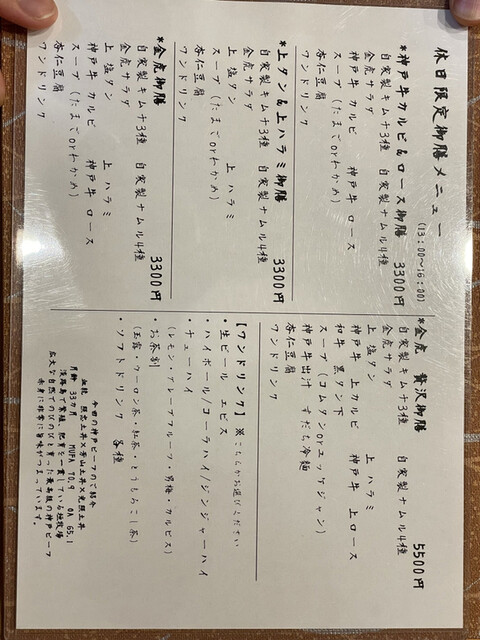 休日限定御膳メニュー
(13:00〜16:00)
*神戸牛カルビ&ロース御膳 3300円
自家製キムチ3種 自家製ナムル4種
金虎サラダ
神戸牛 カルビ 神戸牛 ロース
スープ(たまごorわかめ)
杏仁豆腐
ワンドリンク
*上タン&上ハラミ御膳 3300円
自家製キムチ3種 自家製ナムル4種
金虎サラダ
上塩タン 上ハラミ
スープ(たまごorわかめ)
杏仁豆腐
ワンドリンク
*金虎御膳 3300円
自家製キムチ3種 自家製ナムル4種
金虎サラダ
上塩タン 上ハラミ
神戸牛 カルビ 神戸牛 ロース
スープ(たまごorわかめ)
杏仁豆腐
ワンドリンク
*金虎 贅沢御膳 5500円
自家製キムチ3種 自家製ナムル4種
金虎サラダ
上塩タン 上ハラミ
神戸牛 上カルビ 神戸牛 上ロース
和牛 黒タン下
スープ(コムタンorユッケジャン)
神戸牛出汁 すだち冷麺
杏仁豆腐
ワンドリンク
【ワンドリンク】※こちらからお選びください
・生ビール エビス
・ハイボール/コーラハイ/ジンジャーハイ
・チューハイ
(レモン・グレープフルーツ・男梅・カルピス)
・お茶割
(玉露・ウーロン茶・紅茶・とうもろこし茶)
・ソフトドリンク 各種
今回の神戸ビーフのご紹介
月齢 33カ月 MUFA 70.9 OA 65.1
淡路島で繁殖、肥育を一貫している牧場
広大な自然でのびのびと育った最高級の神戸ビーフ
赤身に非常に旨味がつまっています。